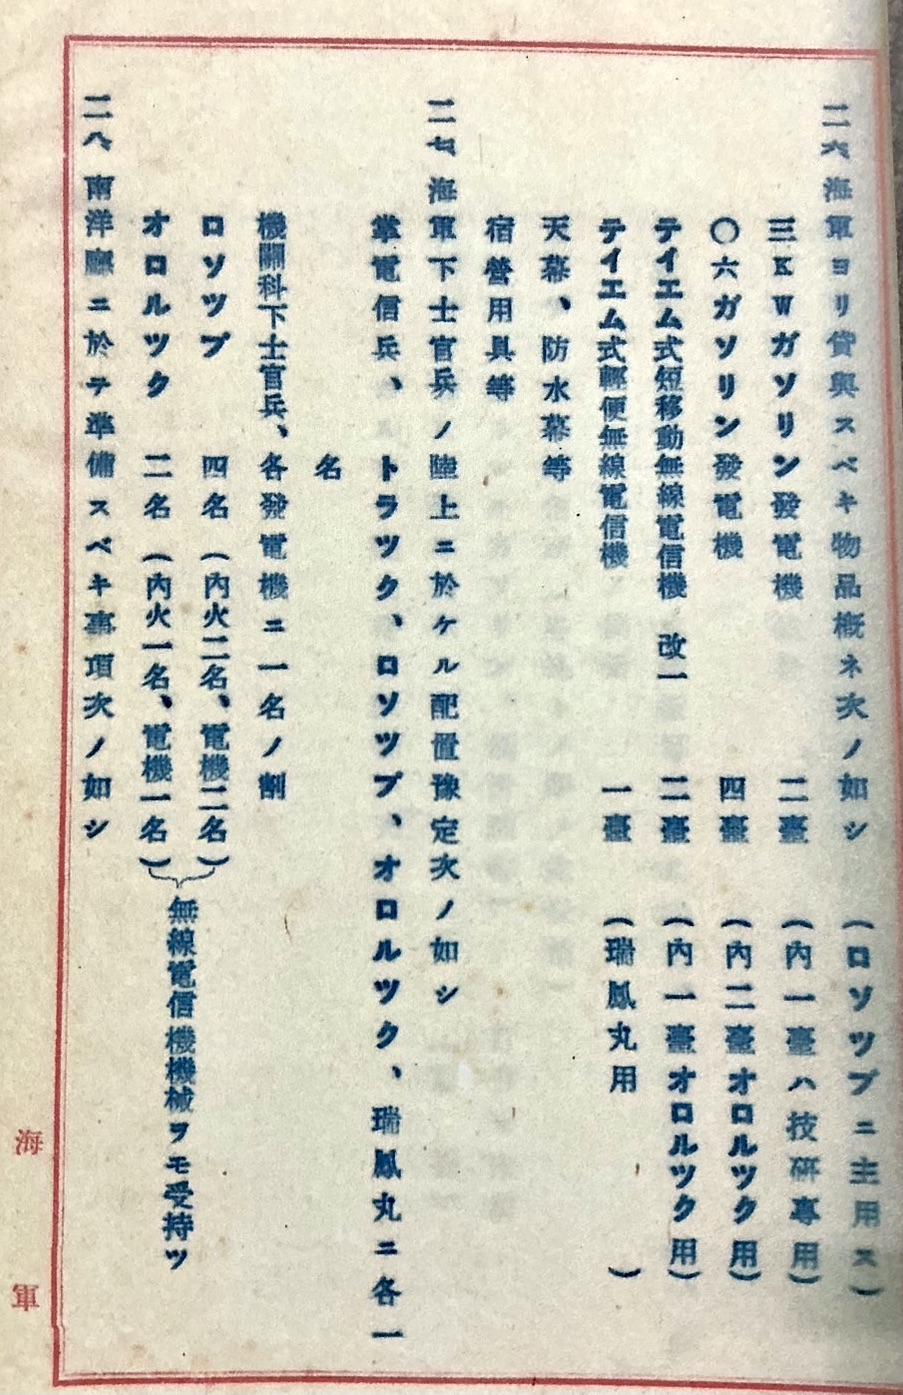 二六、海軍ヨリ貸與スベキ物品概ネ次ノ如シ（ロソツプニ主用ス）
三KWガソリン發電機 二臺（內一臺ハ技硏專用）
〇六ガソリン發電機 四臺（內二臺オロルツク用）
テイエム式短移動無線電信機 改一 二臺（內一臺オロルツク用）
テイエム式輕便無線電信機 一臺（瑞鳳丸用）
天幕、防水幕等
宿營用具等
二七、海軍下士官兵ノ陸上ニ於ケル配置豫定次ノ如シ
掌電信兵、トラツク、ロソツプ、オロルツク、瑞鳳丸ニ各一
名
機關科下士官兵、各發電機ニ一名ノ割
ロソツプ 四名（內火二名、電機二名）
オロルツク 二名（內火一名、電機一名）
無線電信機機械ヲモ受持ツ
二八、南洋廳ニ於テ準備スベキ事項次ノ如シ
海軍